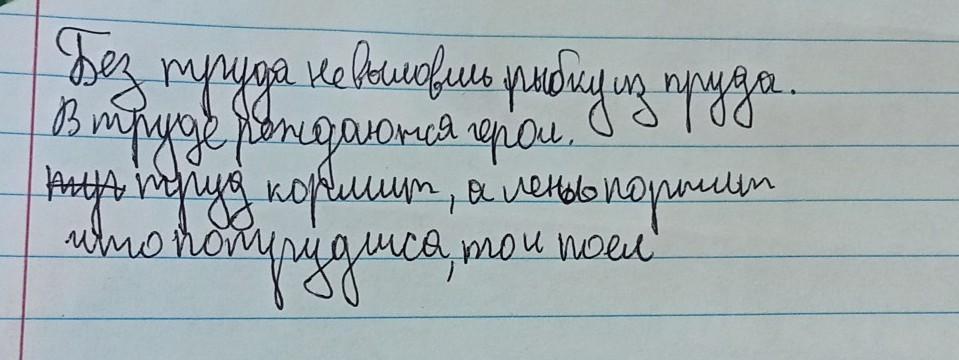 Без труда не выловишь рыбку из пруда.
В труде рождаются герои.
труд кормит, а лень портит
что потрудился, то и поел